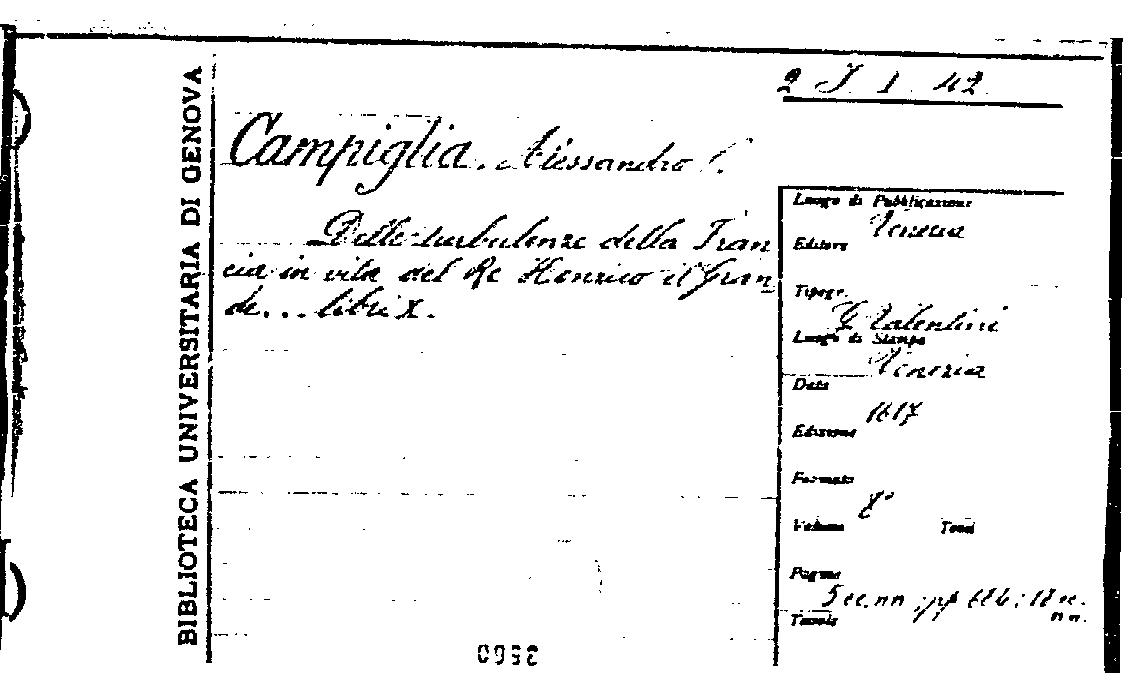 BIBLIOTECA UNIVERSITARIA DI GENOVA
2 J. 1. 42
Campiglia. Alessandro
Delle turbulenze della Fran
cia in vita del Re Henrico il Gran
de... libri X.
Luogo di Pubblicazione
Venezia
Editore
Tipogr.
G. Valentini
Luogo di Stampa
Venezia
Data
1617
Edizione
Formato
8°
Volume Tomi
Pagine
5 cc. nn; pp.
nn.
Tavole